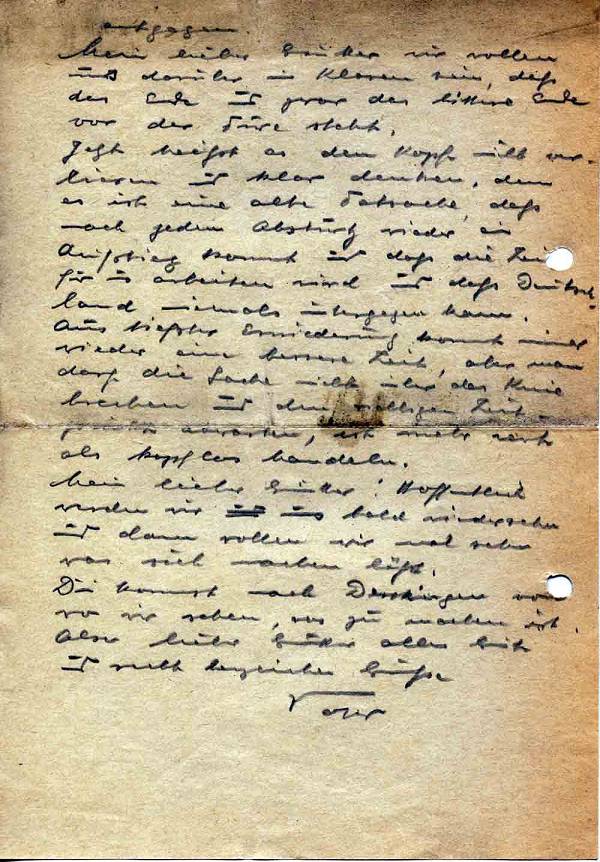 entgegen.
Mein lieber Günther wir wollen
uns darüber im Klaren sein, daß
das Ende und zwar das bittere Ende
vor der Türe steht.
Jetzt heißt es den Kopf nicht ver-
lieren und klar denken, denn
es ist eine alte Tatsache, daß
nach jedem Absturz wieder ein
Aufstieg kommt und daß die Zeit
für uns arbeiten wird und daß Deutsch-
land niemals untergegen kann.
Aus tiefster Erniederung kommt immer
wieder eine bessere Zeit, aber man
darf die Sache nicht über das Knie
brechen und den richtigen Zeit-
punkt abwarten, ist mehr wert
als kopflos handeln.
Mein lieber Günther! Hoffentlich
werden wir uns bald wiedersehen
und dann wollen wir mal sehen
was sich machen läßt.
Du kommst nach
wo wir sehen, was zu machen ist.
Also lieber Günther alles Gute
und recht herzliche Grüße
Vater